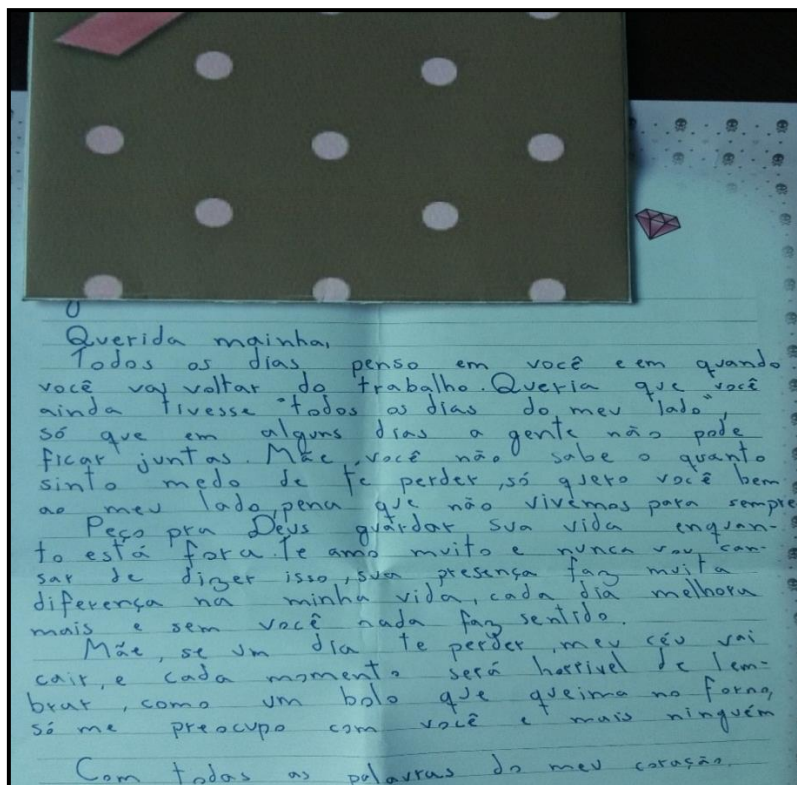 Querida mainha,
Todos os dias penso em você e em quando
você vai voltar do trabalho. Queria que você
ainda tivesse "todos os dias do meu lado",
só que em alguns dias a gente não pode
ficar juntas. Mãe, você não sabe o quanto
sinto medo de te perder, só quero você bem
ao meu lado, pena que não vivemos para sempre
Peço pra Deus guardar sua vida enquan-
to está fora. Te amo muito e nunca vou can-
sar de dizer isso, sua presença faz muita
diferença na minha vida, cada dia melhora
mais e sem você nada faz sentido.
Mãe, se um dia te perder, meu céu vai
cair, e cada momento será horrivel de lem-
brar, como um bolo que queima no forno,
só me preocupo com você e mais ninguém
Com todas as palavras do meu coração.